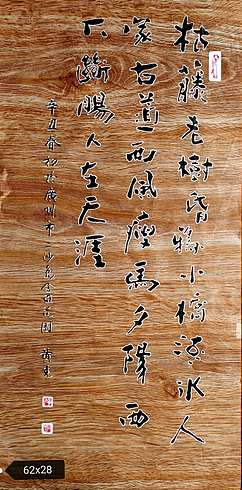 枯藤老樹昏鴉小橋流水人
家古道西風瘦馬夕陽西
下斷腸人在天涯
辛丑春初於廣州市二沙島花園
62x28